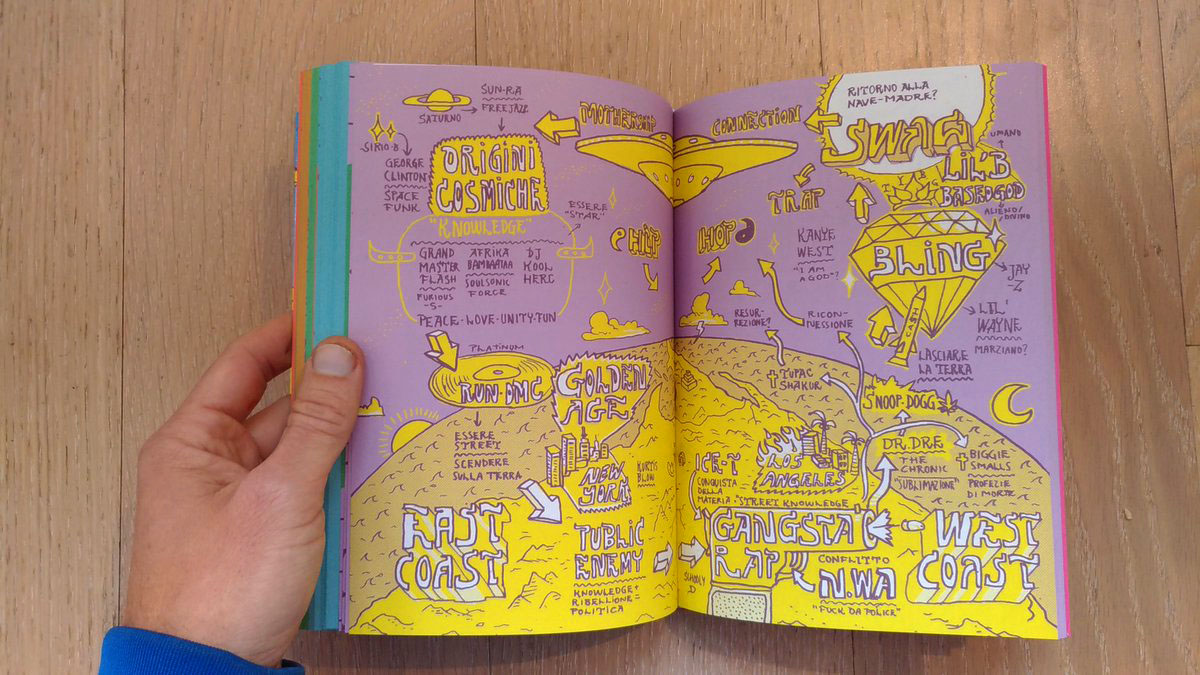 SUN-RA
FREE JAZZ
SATURNO
SIRIO-B
GEORGE
CLINTON
SPACE
FUNK
ORIGINI
COSMICHE
"KNOWLEDGE"
GRAND
MASTER
FLASH
FURIOUS
-5-
AFRIKA
BAMBAATAA
SOULSONIC
FORCE
DJ
KOOL
HERC
PEACE-LOVE-UNITY-FUN
ESSERE
"STAR"
MOTHERSHIP CONNECTION
HIP HOP
PLATINUM
RUN-DMC
ESSERE
STREET
SCENDERE
SULLA TERRA
GOLDEN
AGE
NEW
YORK
KURTIS
BLOW
EAST
COAST
PUBLIC
ENEMY
KNOWLEDGE+
RIBELLIONE=
POLITICA
RITORNO ALLA
NAVE-MADRE?
SWAG
UMANO
LIL'B
BASEDGOD
ALIENO/
DIVINO
TRAP
KANYE
WEST
"I AM
A GOD"?
BLING
JAY
-Z
LIL'
WAYNE
MARZIANO?
CASH
LASCIARE
LA TERRA
RESUR-
REZIONE?
RICON-
NESSIONE
TUPAC
SHAKUR
SNOOP-DOGG
DR. DRE
THE
CHRONIC
"SUBLIMAZIONE"
BIGGIE
SMALLS
PROFEZIE
DI MORTE
LOS
ANGELES
ICE-T
CONQUISTA
DELLA
MATERIA-"STREET KNOWLEDGE
GANGSTA
RAP
SCHOOLY
D
CONFLITTO
N.WA
"FUCK DA POLICE"
WEST
COAST